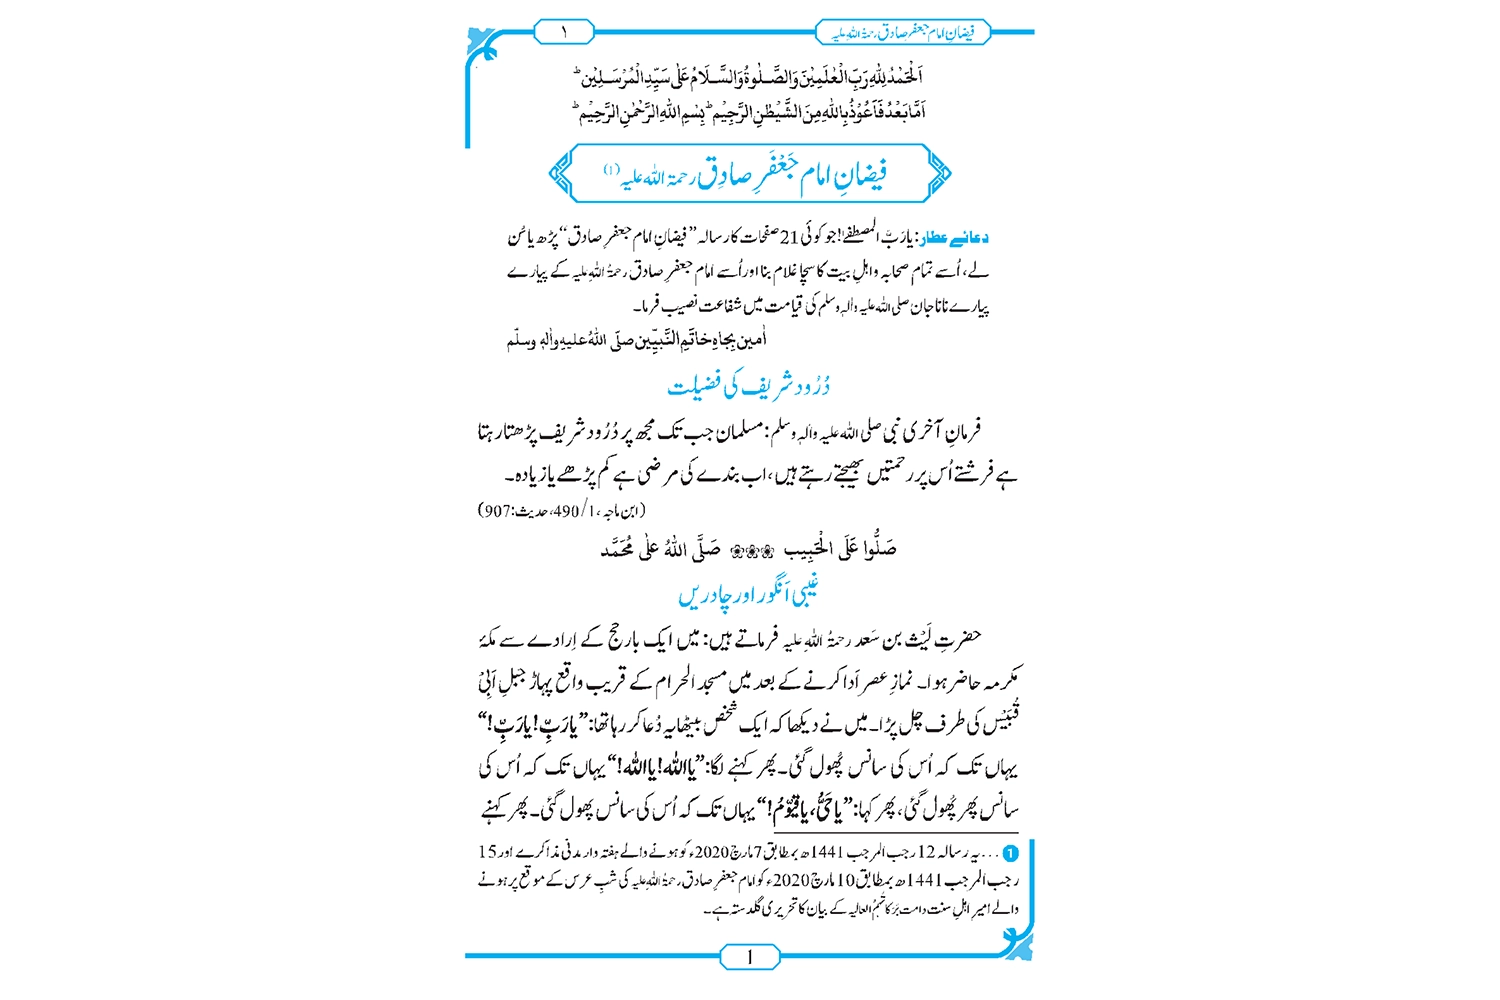 فیضانِ امام جعفر صادق رحمۃ اللہ علیہ
۱
اَلْحَمْدُ لِلّٰہِ رَبِّ الْعٰلَمِیْنَ وَالصَّلٰوۃُ وَالسَّلَامُ عَلٰی سَیِّدِ الْمُرْسَلِیْن ؕ
اَمَّا بَعْدُ فَاَعُوْذُ بِاللّٰہِ مِنَ الشَّیْطٰنِ الرَّجِیْم ؕ بِسْمِ اللّٰہِ الرَّحْمٰنِ الرَّحِیْم ؕ
فیضانِ امام جَعْفَرِ صادِق رحمۃ اللہ علیہ (1)
دعائے عطار: یارَبَّ المصطفےٰ! جو کوئی 21 صفحات کا رسالہ ”فیضانِ امام جعفر صادق“ پڑھ یا سُن
لے، اُسے تمام صحابہ و اہلِ بیت کا سچا غلام بنا اور اُسے امام جعفرِ صادق رحمۃُ اللہِ علیہ کے پیارے
پیارے نانا جان صلی اللہ علیہ واٰلہٖ وسلم کی قیامت میں شفاعت نصیب فرما۔
اٰمین بِجاہِ خاتَمِ النَّبِیِّین صلَّی اللہُ علیہِ واٰلہٖ وسلَّم
دُرُود شریف کی فضیلت
فرمانِ آخری نبی صلی اللہ علیہ واٰلہٖ وسلم: مسلمان جب تک مجھ پر دُرُود شریف پڑھتا رہتا
ہے فرشتے اُس پر رحمتیں بھیجتے رہتے ہیں، اب بندے کی مرضی ہے کم پڑھے یا زیادہ۔
(ابن ماجہ، 1/490، حدیث: 907)
صَلُّوا عَلَی الْحَبِیب ❀❀❀ صَلَّی اللہُ علٰی مُحَمَّد
غیبی اَنگور اور چادریں
حضرتِ لَیْث بن سَعد رحمۃُ اللہِ علیہ فرماتے ہیں: میں ایک بار حج کے اِرادے سے مکۂ
مکرمہ حاضر ہوا۔ نمازِ عصر اَدا کرنے کے بعد میں مسجد الحرام کے قریب واقع پہاڑ جَبَلِ اَبِیْ
قُبَیْس کی طرف چل پڑا۔ میں نے دیکھا کہ ایک شخص بیٹھا یہ دُعا کر رہا تھا: ”یارَبِّ! یارَبِّ!“
یہاں تک کہ اُس کی سانس پُھول گئی۔ پھر کہنے لگا: ”یا اللہ! یا اللہ!“ یہاں تک کہ اُس کی
سانس پھر پُھول گئی، پھر کہا: ”یا حَیُّ، یا قیّومُ!“ یہاں تک کہ اُس کی سانس پھول گئی۔ پھر کہنے
1 ... یہ رسالہ 12 رجب المرجب 1441ھ بمطابق 7 مارچ 2020ء کو ہونے والے ہفتہ وار مدنی مذاکرے اور 15
رجب المرجب 1441ھ بمطابق 10 مارچ 2020ء کو امام جعفرِ صادق رحمۃُ اللہِ علیہ کی شبِ عرس کے موقع پر ہونے
والے امیرِ اہلِ سنت دامت بَرَکاتُہُمُ العالیہ کے بیان کا تحریری گلدستہ ہے۔
1